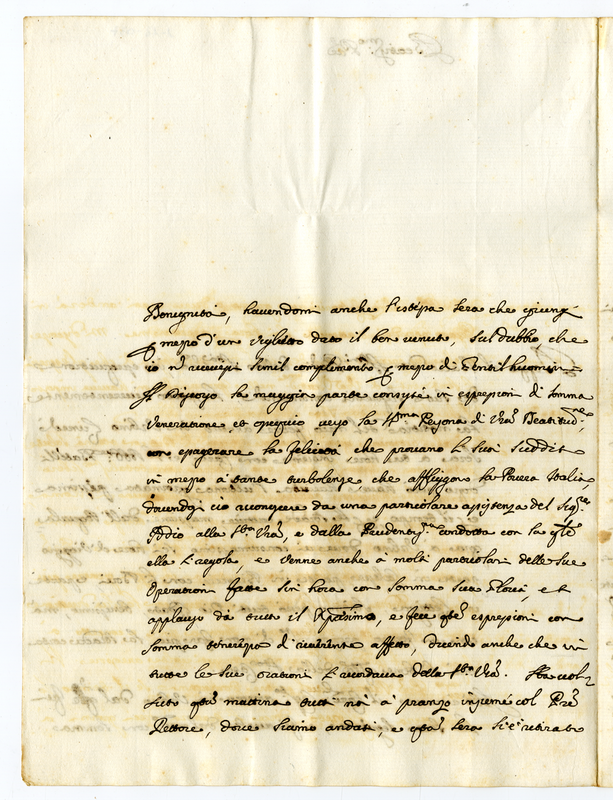 Benignità, havendomi anche l'istessa sera che giunsi
p mezzo d'un viglietto dato il ben venuto, sul dubbio che
io nõ ricevessi simil complimento p mezo di Gentilhuomini
Il discorso la maggior parte consisté in espressioni di somma
veneratione, et ossequio verso la Sma Persona di Vrã Beatitudne,
con esagerare la felicità, che provano i suoi sudditi
in mezo à tante turbolenze, che affliggon la povera Italia
dovendosi ciò riconoscere da una particolare assistenza del Sigre
Iddio alla Stà Vrã, e dalla Prudentissma condotta con la qle
ella si regola, e venne anche à molti particolari delle sue
operationi fatte sin hora con somma sua gloria, et
applauso da tutto il Xpianesimo, e fece qte espressioni con
somma tenerezza di riverente affetto, dicendo anche che in
tutte le sue orationi si ricordava della Stà Vrã. Ha vol
suto qta mattina tutti noi à pranzo insieme col Pre
Rettore, dove siamo andati; e qta sera si è ritirato